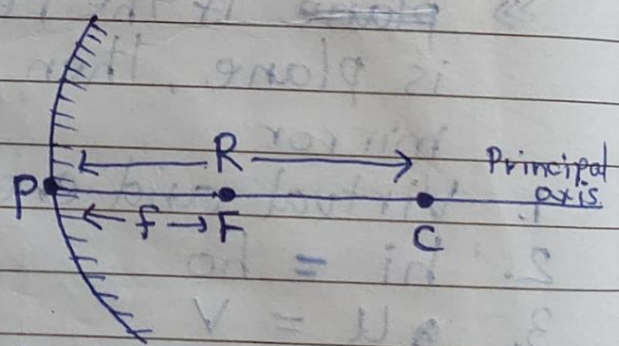 R
Principal
axis
P
f
F
C